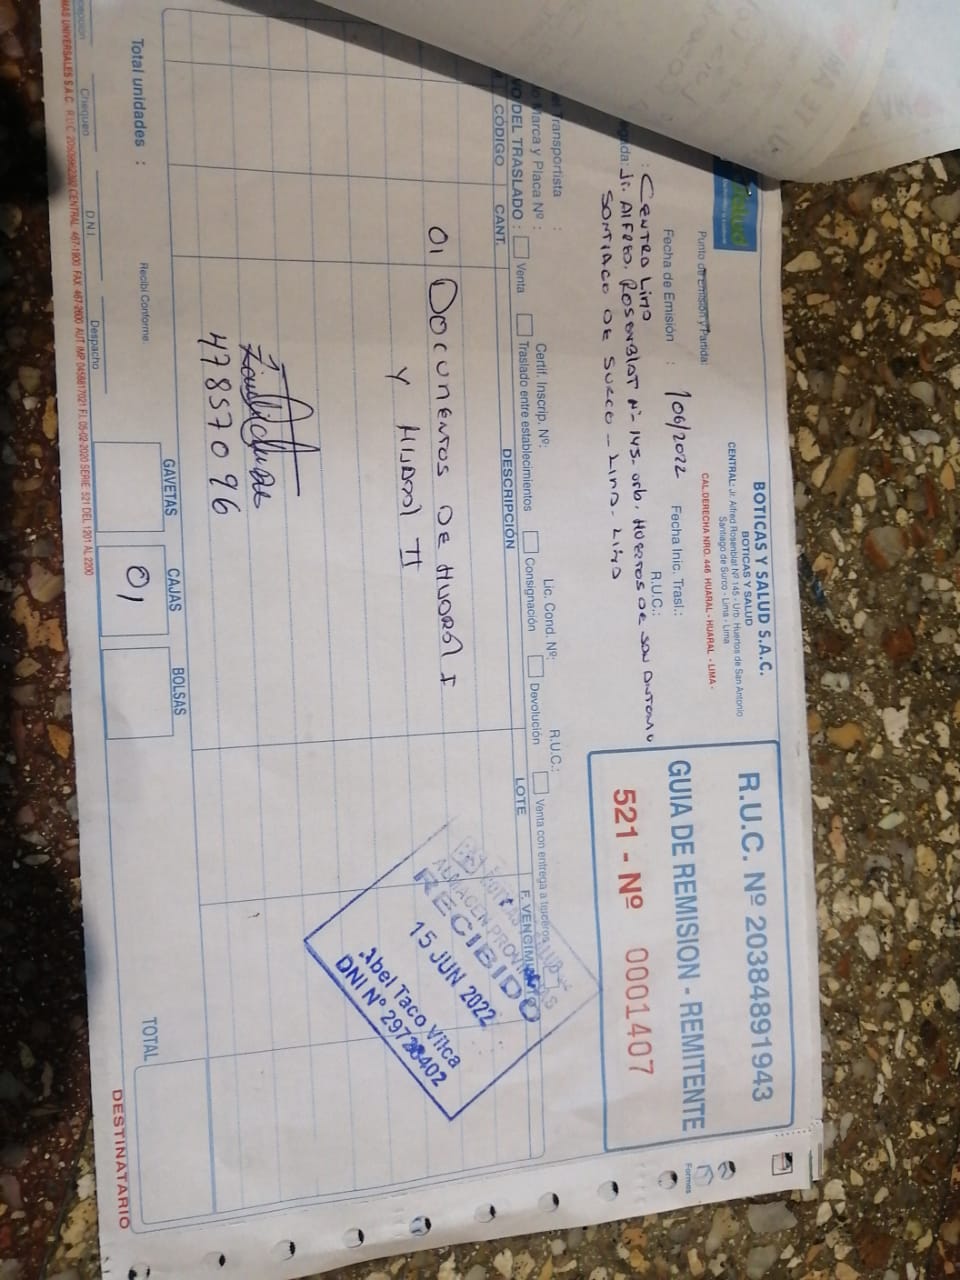 BOTICAS Y SALUD S.A.C.
BOTICAS Y SALUD
CENTRAL: Jr. Alfred Rosenblat Nº 145 - Urb. Huertos de San Antonio
Santiago de Surco - Lima - Lima
CAL.DERECHA NRO. 446 HUARAL - HUARAL - LIMA -
R.U.C. Nº 20384891943
GUIA DE REMISION - REMITENTE
521 - Nº 0001407
Formas
Punto de Emisión y Partida:
Fecha de Emisión : /06/2022 Fecha Inic. Trasl.:
: CENTRO Lima R.U.C.:
Jr. Alfredo. ROSENBLAT Nº 145. Urb. HUERTOS DE SAN ANTONIO
SANTIAGO DE SURCO - LIMA - LIMA
Transportista : R.U.C.:
Marca y Placa Nº : Certif. Inscrip. Nº: Lic. Cond. Nº:
DEL TRASLADO : Venta Traslado entre establecimientos Consignación Devolución Venta con entrega a terceros
CÓDIGO CANT. DESCRIPCIÓN LOTE F. VENCIMIENTO
01 DOCUMENTOS DE HUARAL I
Y HUARAL II
47857096
BOTICAS Y SALUD
ALMACEN PROVINCIAS
RECIBIDO
15 JUN 2022
Abel Taco Vilca
DNI Nº 29728402
Total unidades : GAVETAS CAJAS BOLSAS TOTAL
01
Recibí Conforme.
Chequeo D.N.I. Despacho
DESTINATARIO